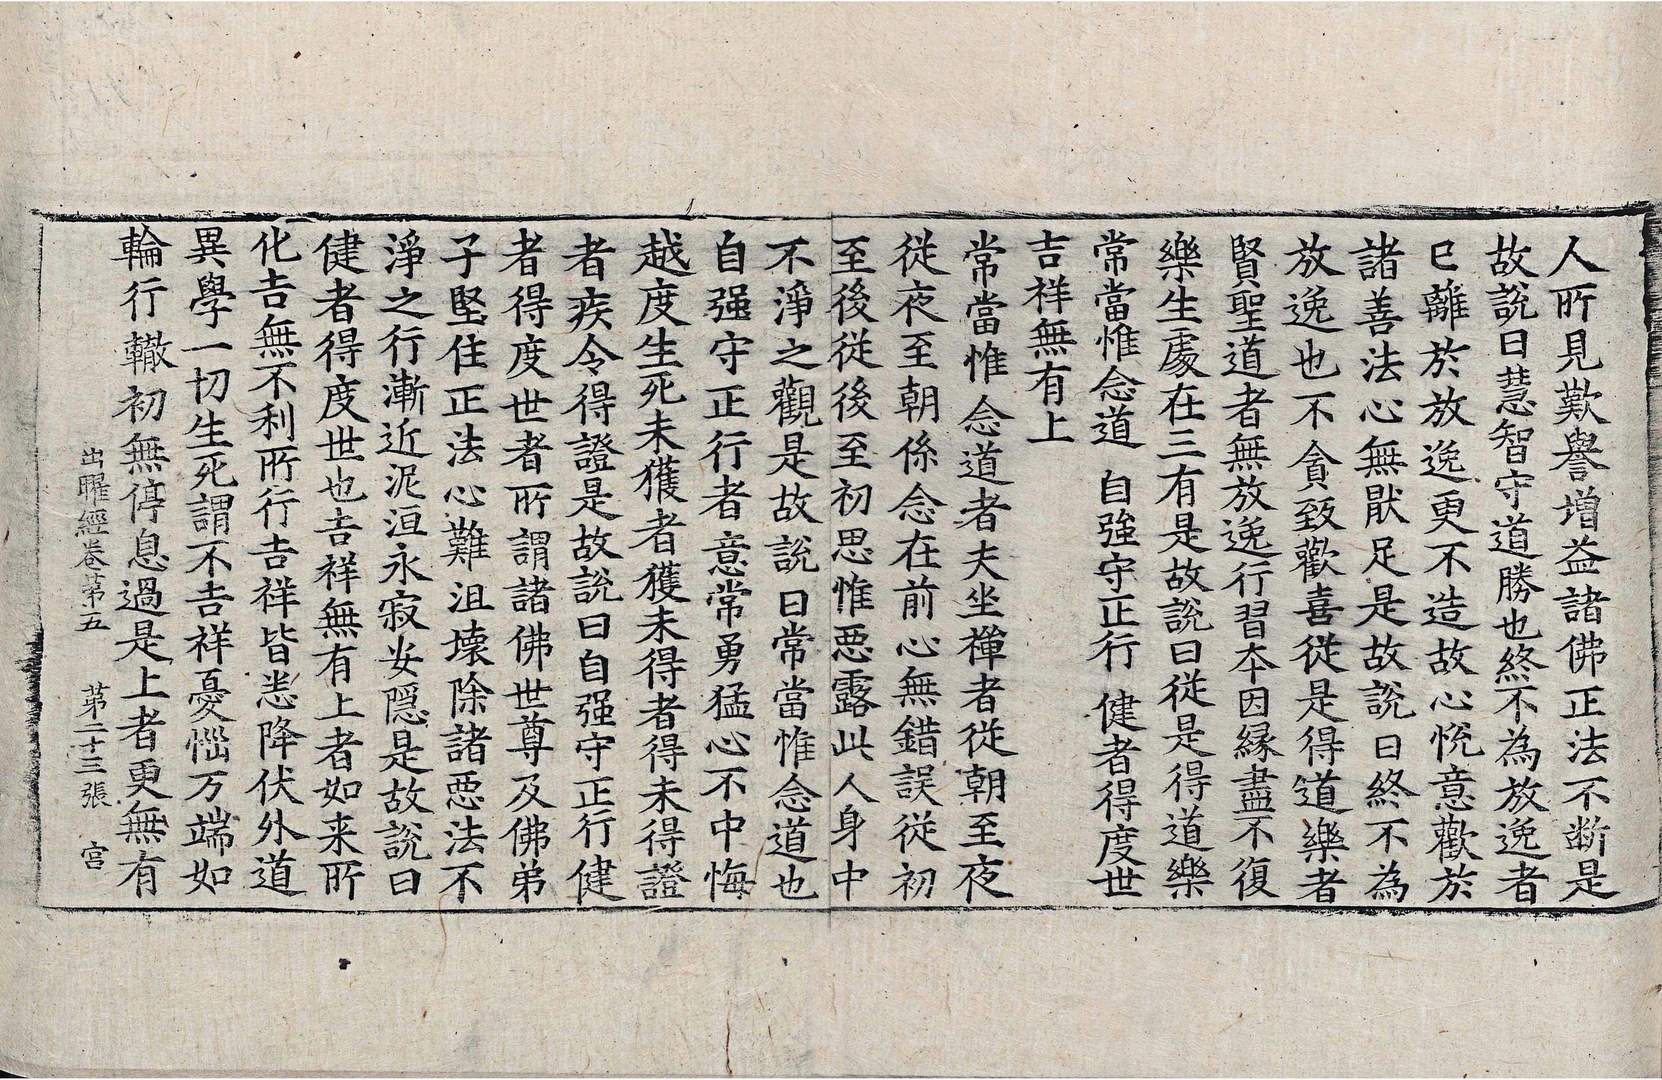 人所見歎譽増益諸佛正法不断是
故說曰慧智守道勝也終不為放逸者
已離於放逸更不造故心恱意歡於
諸善法心無猒足是故說曰終不為
放逸也不貪致歡喜從是得道樂者
賢聖道者無放逸行習本因縁盡不復
樂生處在三有是故說曰從是得道樂
常當惟念道 自強守正行 健者得度世
吉祥無有上
常當惟念道者夫坐禪者從朝至夜
從夜至朝係念在前心無錯誤從初
至後從後至初思惟惡露此人身中
不淨之觀是故說曰常當惟念道也
自强守正行者意常勇猛心不中悔
越度生死未獲者獲未得者得未得證
者疾令得證是故說曰自强守正行健
者得度世者所謂諸佛世尊及佛弟
子堅住正法心難沮壞除諸惡法不
淨之行漸近泥洹永寂安隠是故說曰
健者得度世也吉祥無有上者如来所
化吉無不利所行吉祥皆悉降伏外道
異學一切生死謂不吉祥憂惱万端如
輪行轍初無停息過是上者更無有
出曜經卷第五 第二十三張 宫